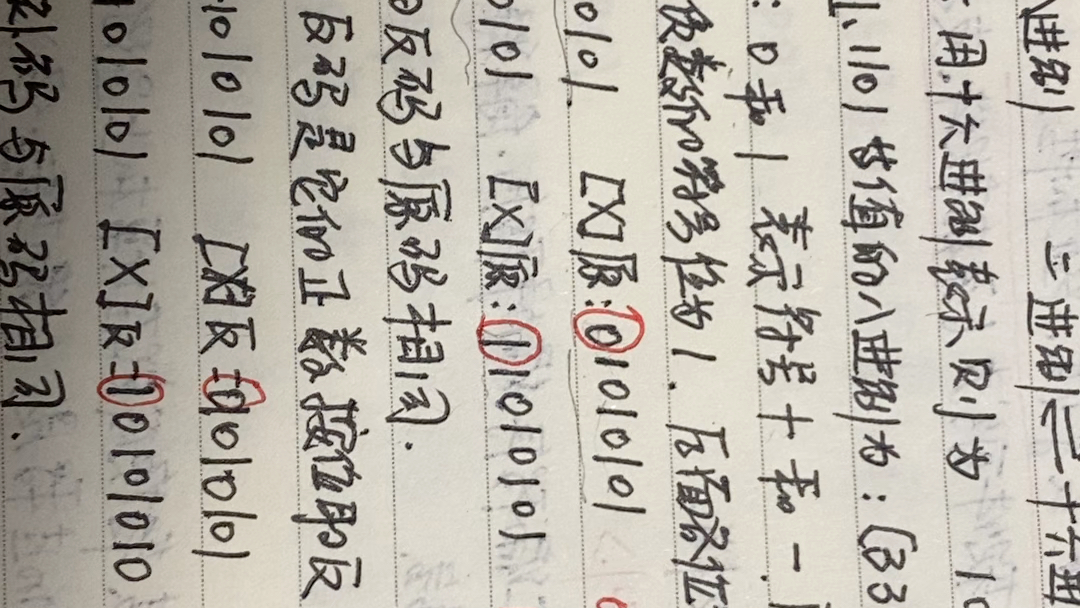 进制 二进制 三 十六进
用十六进制表示 则为 10
1101 其值的八进制为：(33
：0和1 表示符号+和－.
负数的符号位为1. 后面各位
0101 [X]原：01010101
0101 [X]原：11010101
反码与原码相同.
反码是它的正数按位取反
1010101 [X]反=01010101
1010101 [X]反=10101010
补码与原码相同.